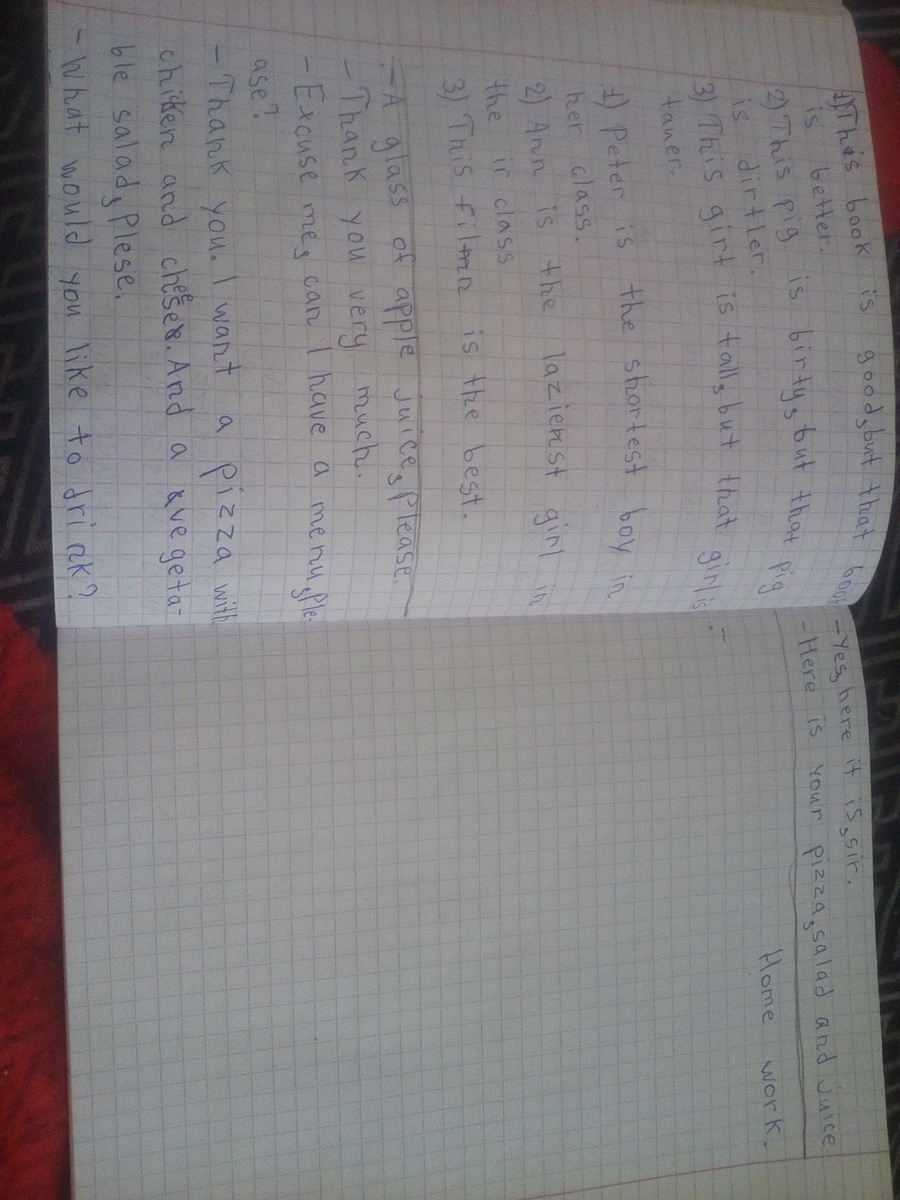 1) This book is good, but that book
is better.
2) This pig is birty, but that pig
is dirtler.
3) This girt is tall, but that girl is
tauer.
1) Peter is the shortest boy in
her class.
2) Ann is the lazienst girl in
the ir class
3) This film is the best.
- A glass of apple juice, please.
- Thank you very much.
- Excuse me, can I have a menu, ple-
ase?
- Thank you. I want a pizza with
chiken and cheese. And a vegeta-
ble salad, Plese.
- What would you like to drink?
- Yes, here it is, sir.
- Here is your pizza, salad and juice
Home work.